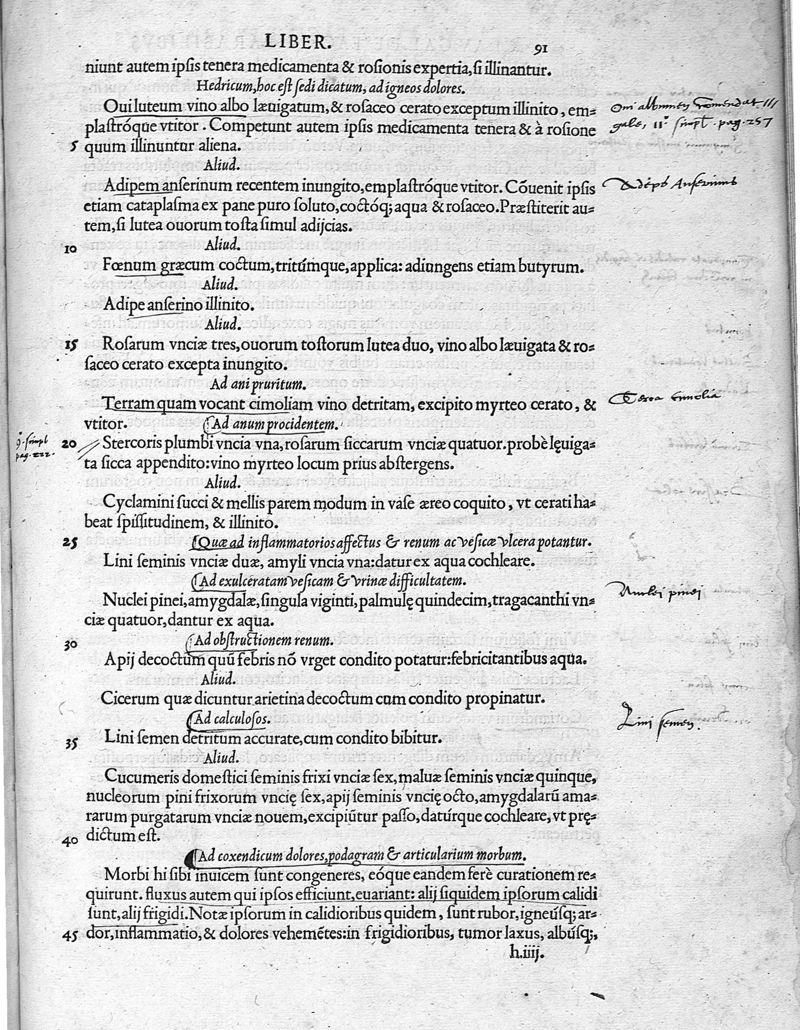 LIBER. 91
niunt autem ipsis tenera medicamenta & rosionis expertia, si illinantur.
Hedricum, hoc est sedi dicatum, ad igneos dolores.
Oui luteum vino albo læuigatum, & rosaceo cerato exceptum illinito, em-
plastróque vtitor. Competunt autem ipsis medicamenta tenera & à rosione
5 quum illinuntur aliena.
Aliud.
Adipem anserinum recentem inungito, emplastróque vtitor. Cõuenit ipsis
etiam cataplasma ex pane puro soluto, coctóq; aqua & rosaceo. Præstiterit au-
tem, si lutea ouorum tosta simul adijcias.
10 Aliud.
Fœnum græcum coctum, tritúmque, applica: adiungens etiam butyrum.
Aliud.
Adipe anserino illinito.
Aliud.
15 Rosarum vnciæ tres, ouorum tostorum lutea duo, vino albo læuigata & ro-
saceo cerato excepta inungito.
Ad ani pruritum.
Terram quam vocant cimoliam vino detritam, excipito myrteo cerato, &
vtitor. Ad anum procidentem.
20 Stercoris plumbi vncia vna, rosarum siccarum vnciæ quatuor. probè lęuiga-
ta sicca appendito: vino myrteo locum prius abstergens.
Aliud.
Cyclamini succi & mellis parem modum in vase æreo coquito, vt cerati ha-
beat spissitudinem, & illinito.
25 Quæ ad inflammatorios affectus & renum ac vesicæ vlcera potantur.
Lini seminis vnciæ duæ, amyli vncia vna: datur ex aqua cochleare.
Ad exulceratam vesicam & vrinæ difficultatem.
Nuclei pinei, amygdalæ, singula viginti, palmulę quindecim, tragacanthi vn-
ciæ quatuor, dantur ex aqua.
30 Ad obstructionem renum.
Apij decoctum quũ febris nõ vrget condito potatur: febricitantibus aqua.
Aliud.
Cicerum quæ dicuntur arietina decoctum cum condito propinatur.
Ad calculosos.
35 Lini semen detritum accurate, cum condito bibitur.
Aliud.
Cucumeris domestici seminis frixi vnciæ sex, maluæ seminis vnciæ quinque,
nucleorum pini frixorum vncię sex, apij seminis vncię octo, amygdalarũ ama-
rarum purgatarum vnciæ nouem, excipiũtur passo, datúrque cochleare, vt prę-
40 dictum est.
Ad coxendicum dolores, podagram & articularium morbum.
Morbi hi sibi inuicem sunt congeneres, eóque eandem ferè curationem re-
quirunt. fluxus autem qui ipsos efficiunt, euariant: alij siquidem ipsorum calidi
sunt, alij frigidi. Notæ ipsorum in calidioribus quidem, sunt rubor, igneúsq; ar-
45 dor, inflammatio, & dolores vehemẽtes: in frigidioribus, tumor laxus, albúsq;,
h.iiij.
Oui albumen
pag. 257
Adeps Anserinus
Terra cimolia
pag. 222.
Nuclei pinei
Lini semen.